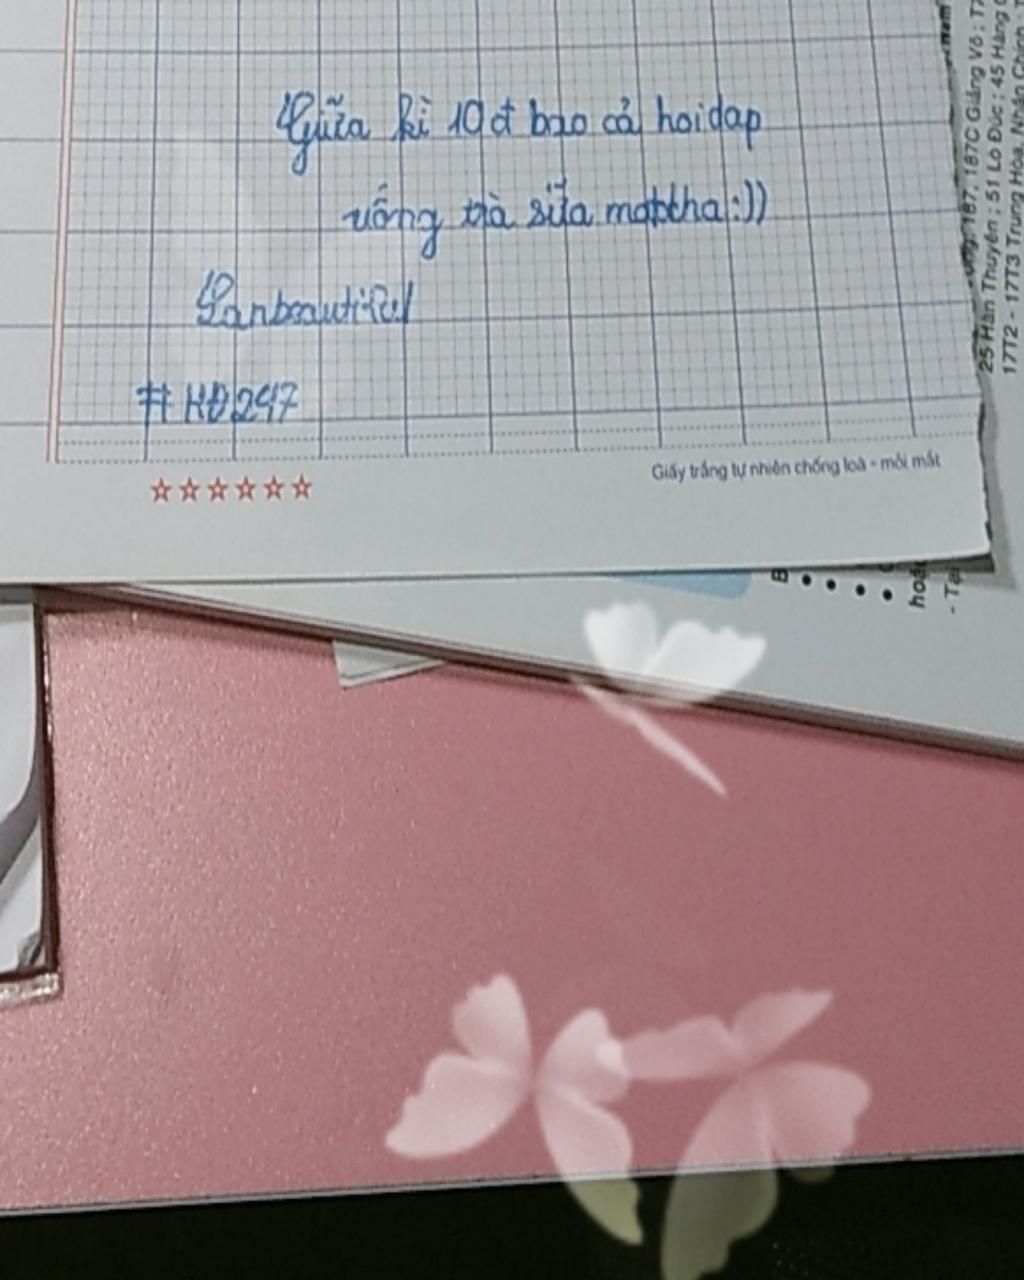 Giữa kì 10đ bao cả hoidap
uống trà sữa matcha:))
Lanbeautiful
#HĐ247
Giấy trắng tự nhiên chống loà - mỏi mắt
187, 187C Giảng Võ ;
25 Hàn Thuyên ; 51 Lò Đúc ; 45 Hàng
17T2 - 17T3 Trung Hòa, Nhân Chính ;
B
hoặc